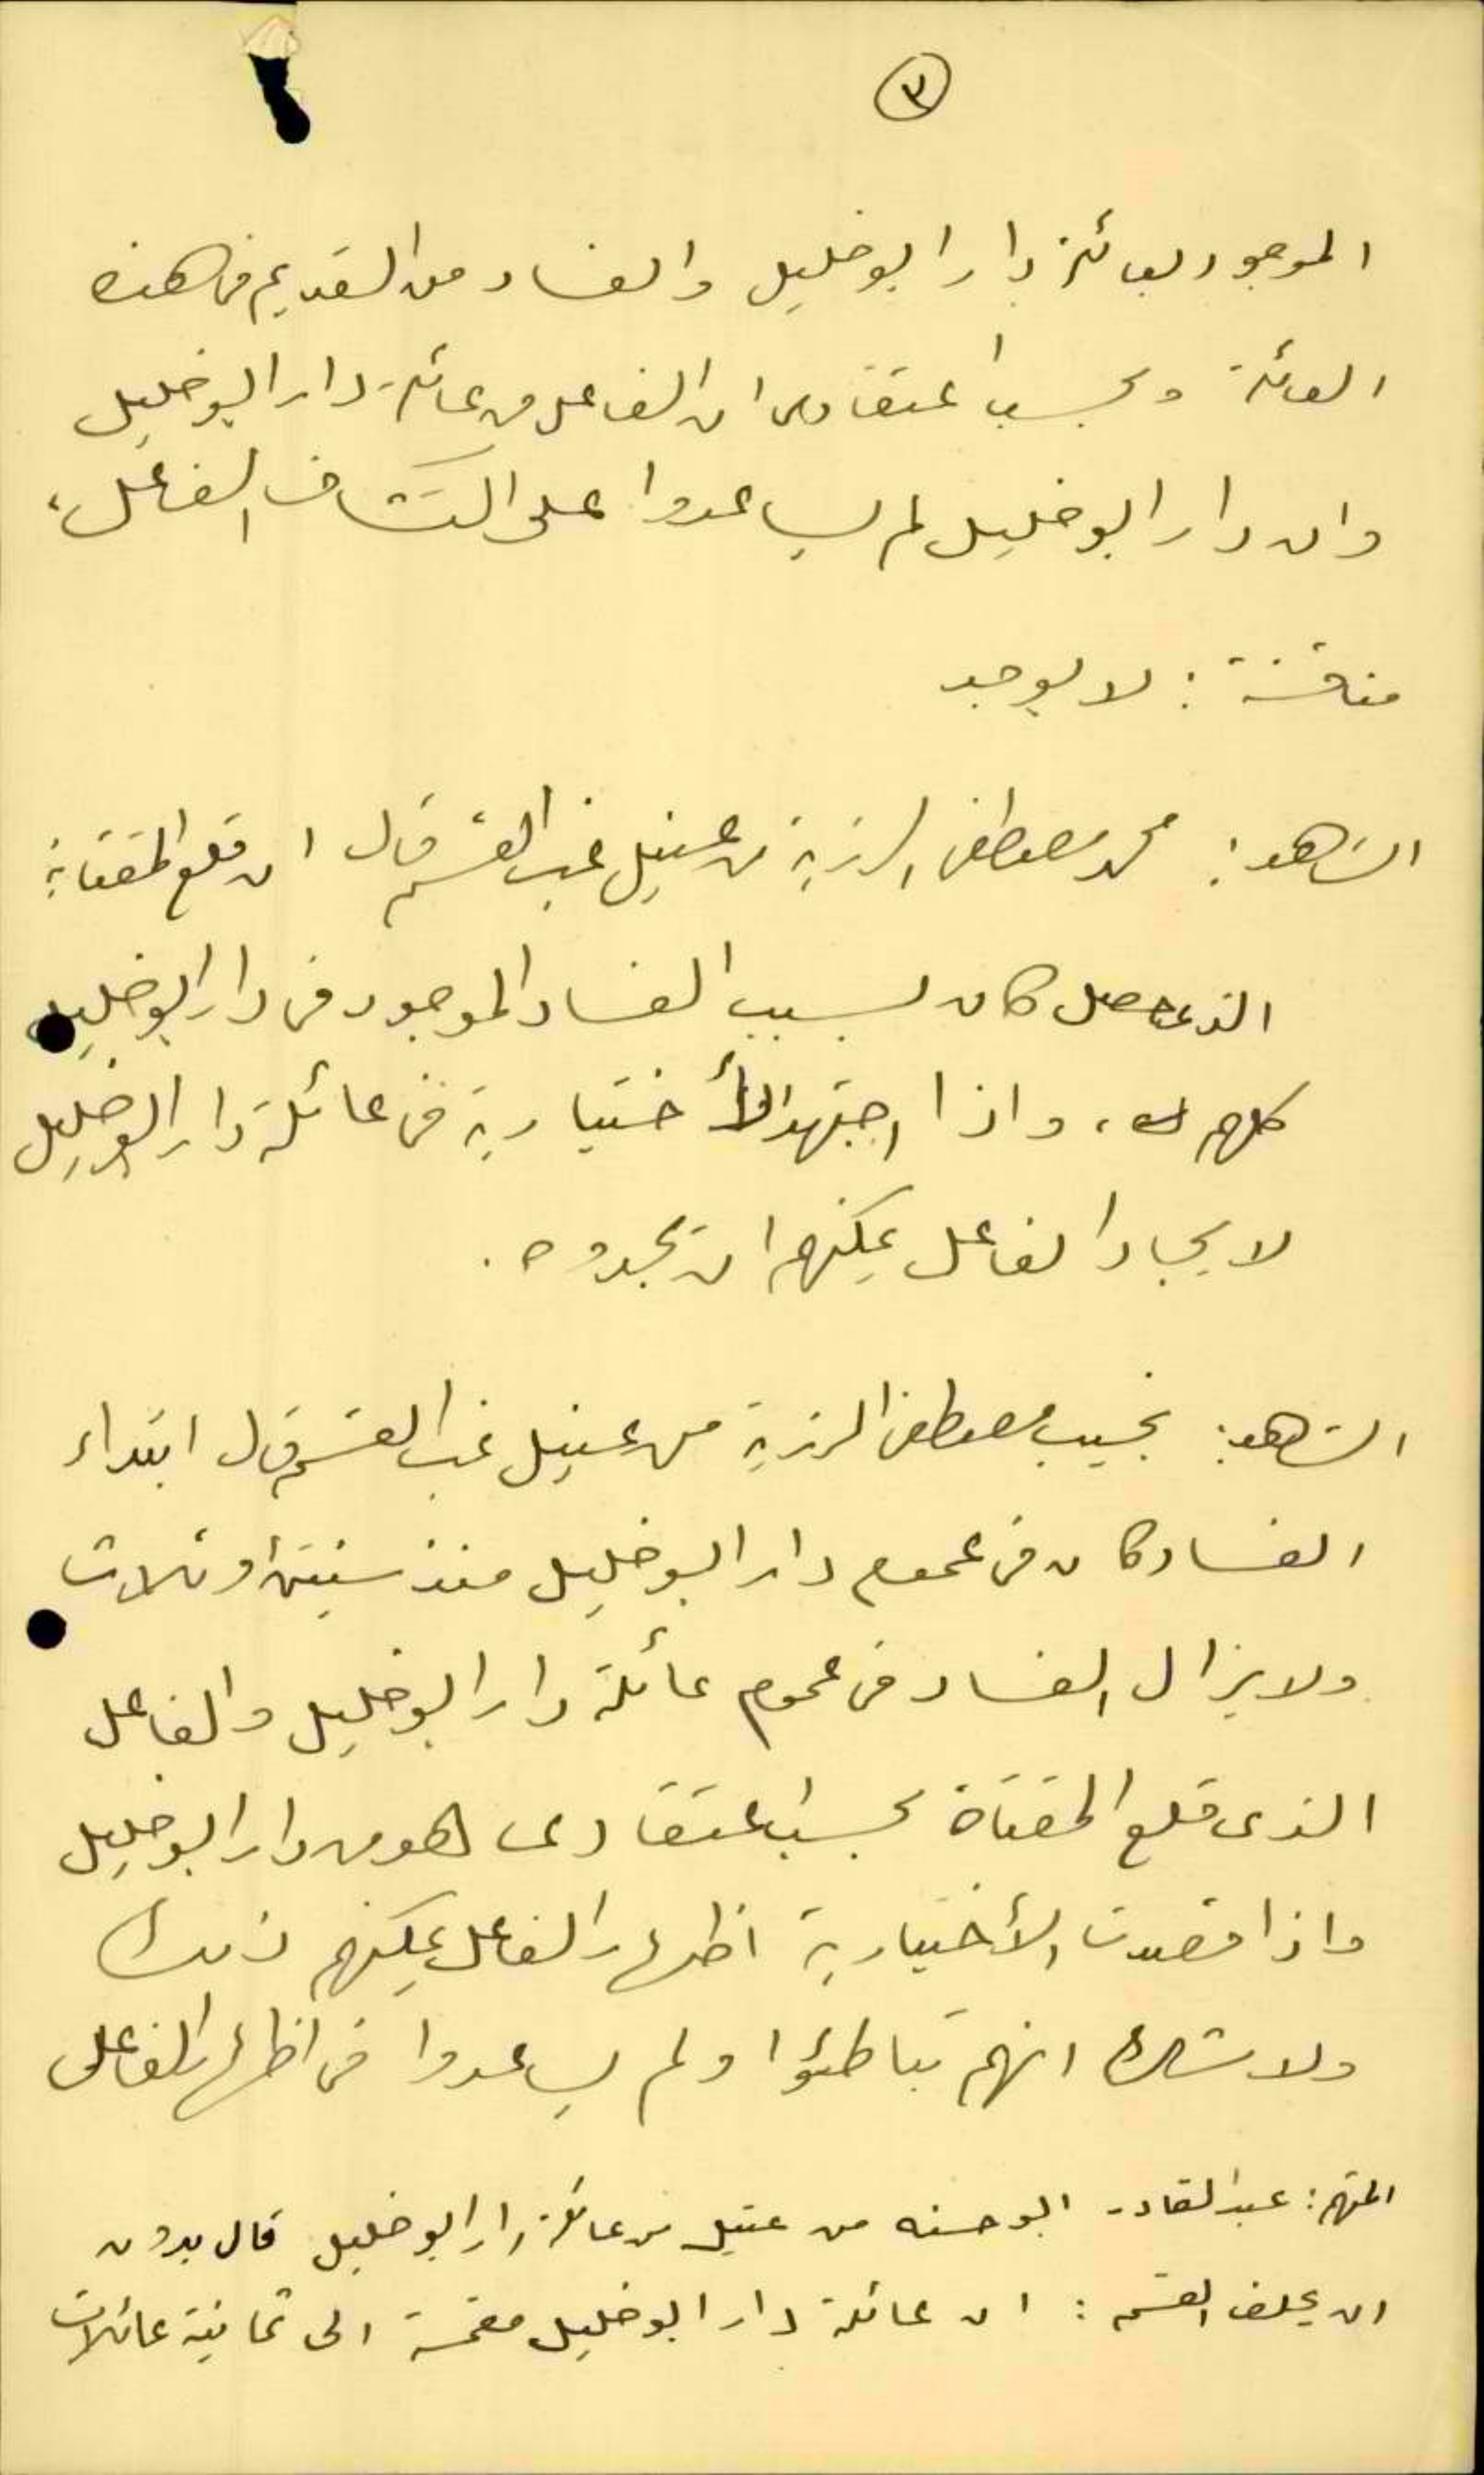 ٣
الموجود بعائلة دار ابو خليل والفساد من القديم في هذه
العائلة وبحسب اعتقادى ان الفاعل من عائلة دار ابو خليل
وان دار ابو خليل لم يساعدوا على اكتشاف الفاعل،
مناقشة : لا يوجد
الشاهد: محمد مصطفى الزرية من عتيل غب القسم قال ان قلع المقتاية
الذى حصل كان بسبب الفساد الموجود في دار ابو خليل
كلهم، واذا اجتهد الأختيارية في عائلة دار ابو خليل
لايجاد الفاعل يمكنهم ان يجدوه .
الشاهد: نجيب مصطفى الزرية من عتيل غب القسم قال ابتداء
الفساد كان في عموم دار ابو خليل منذ سنتين أو ثلاث
ولا يزال الفساد في عموم عائلة دار ابو خليل والفاعل
الذى قلع المقتاة بحسب اعتقادى هو من دار ابو خليل
واذا قصدت الأختيارية اظهار الفاعل يمكنهم ذلك
ولا شك انهم تباطئوا ولم يساعدوا في اظهار الفاعل
المتهم: عبد القادر ابو حسنه من عتيل من عائلة دار ابو خليل قال بدون
ان يحلف القسم : ان عائلة دار ابو خليل مقسمة الى ثمانية عائلات